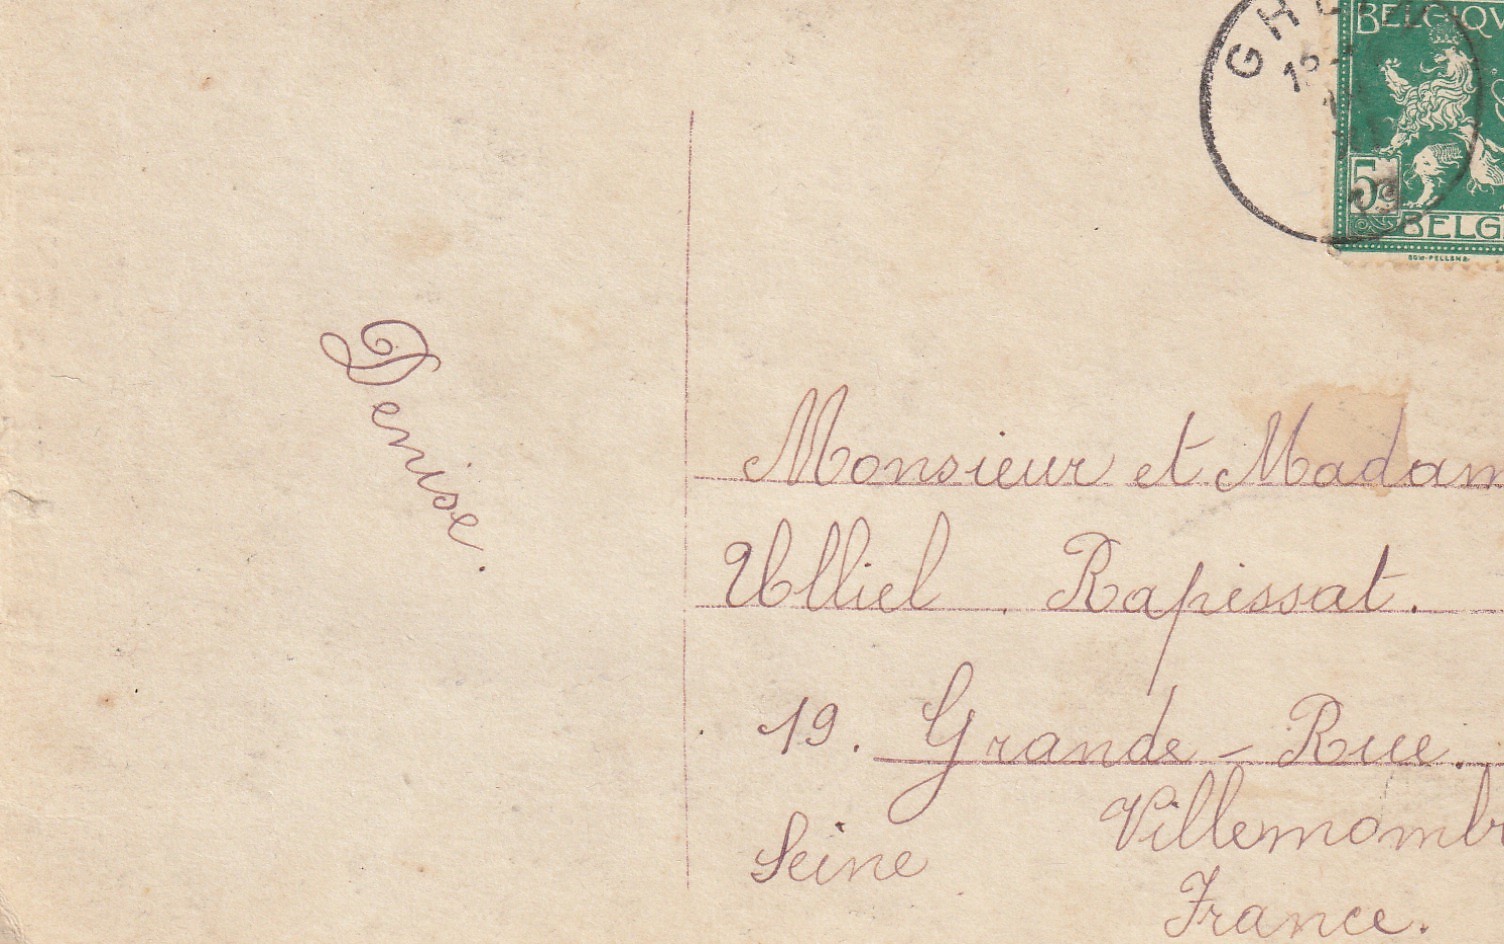 BELGIQU
5
BELG
Denise.
Monsieur et Madam
Ulliel . Rapissat.
19. Grande - Rue.
Villemombr
Seine
France.